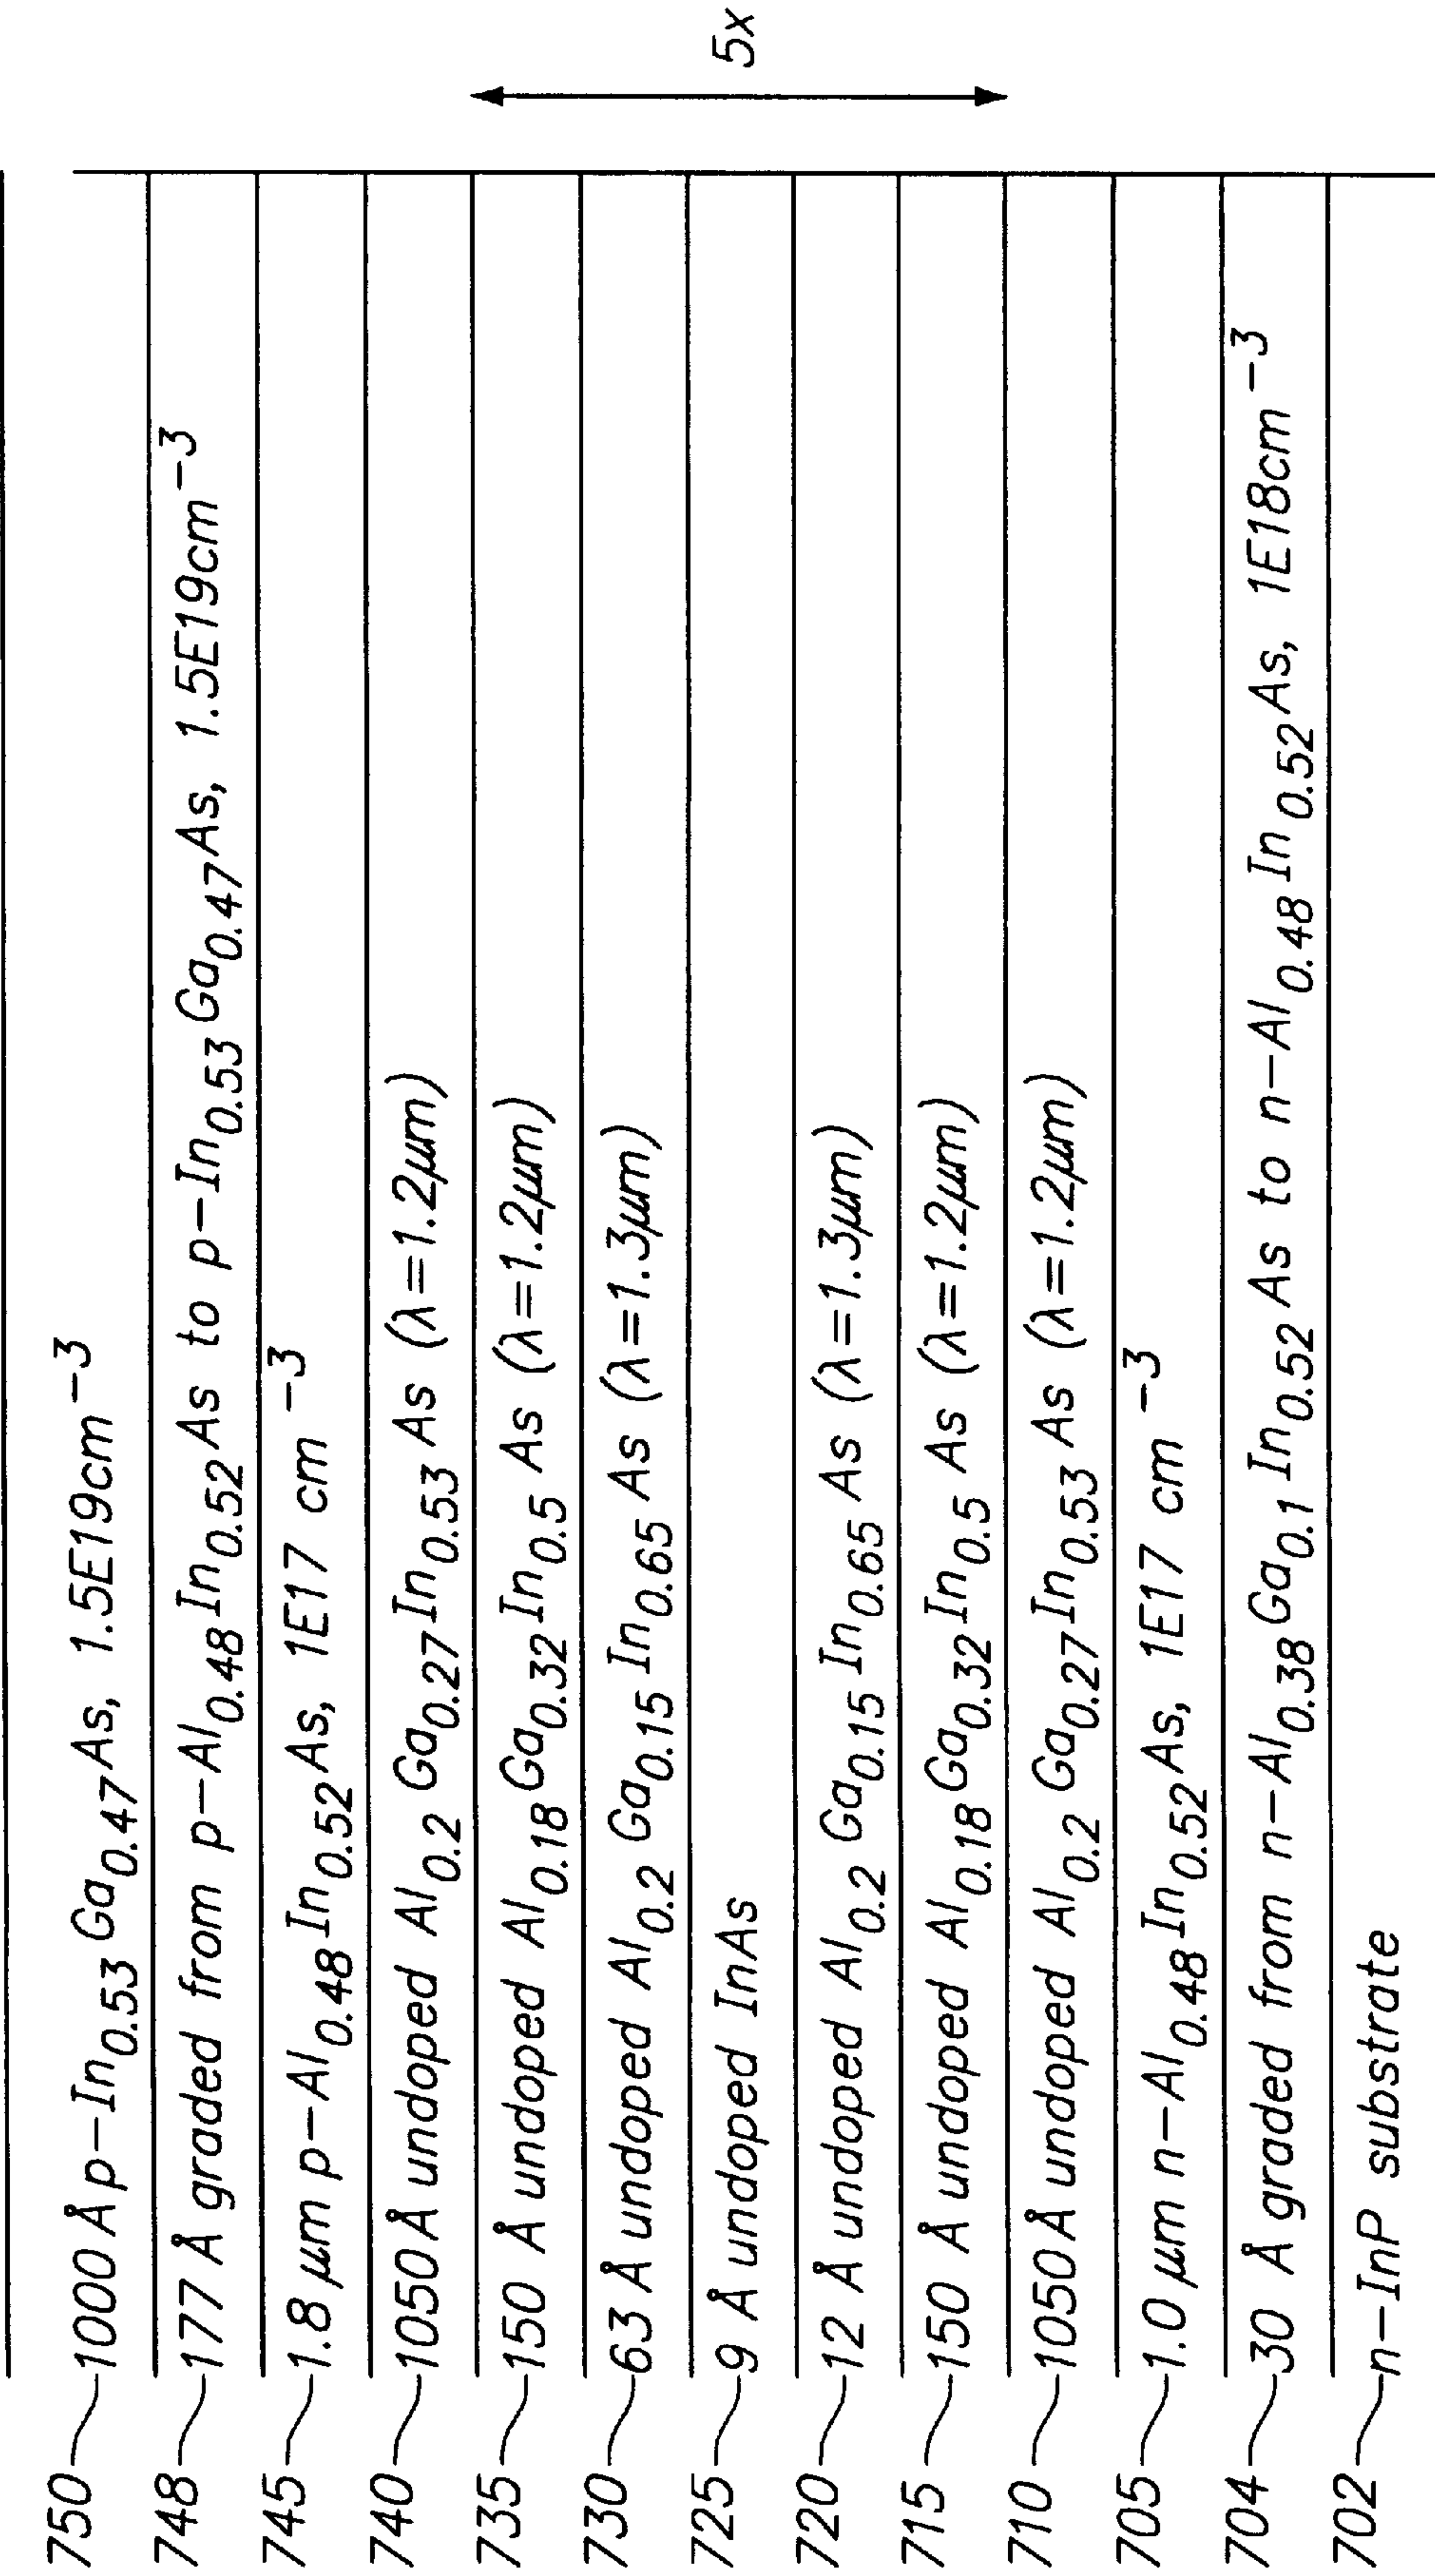 750 1000 Å p−In0.53Ga0.47As, 1.5E19cm−3
748 177 Å graded from p−Al0.48In0.52As to p−In0.53Ga0.47As, 1.5E19cm−3
745 1.8 μm p−Al0.48In0.52As, 1E17 cm−3
740 1050 Å undoped Al0.2Ga0.27In0.53As (λ=1.2μm)
735 150 Å undoped Al0.18Ga0.32In0.5As (λ=1.2μm)
730 63 Å undoped Al0.2Ga0.15In0.65As (λ=1.3μm)
725 9 Å undoped InAs
720 12 Å undoped Al0.2Ga0.15In0.65As (λ=1.3μm)
715 150 Å undoped Al0.18Ga0.32In0.5As (λ=1.2μm)
710 1050 Å undoped Al0.2Ga0.27In0.53As (λ=1.2μm)
705 1.0 μm n−Al0.48In0.52As, 1E17 cm−3
704 30 Å graded from n−Al0.38Ga0.1In0.52As to n−Al0.48In0.52As, 1E18cm−3
702 n−InP substrate
5x